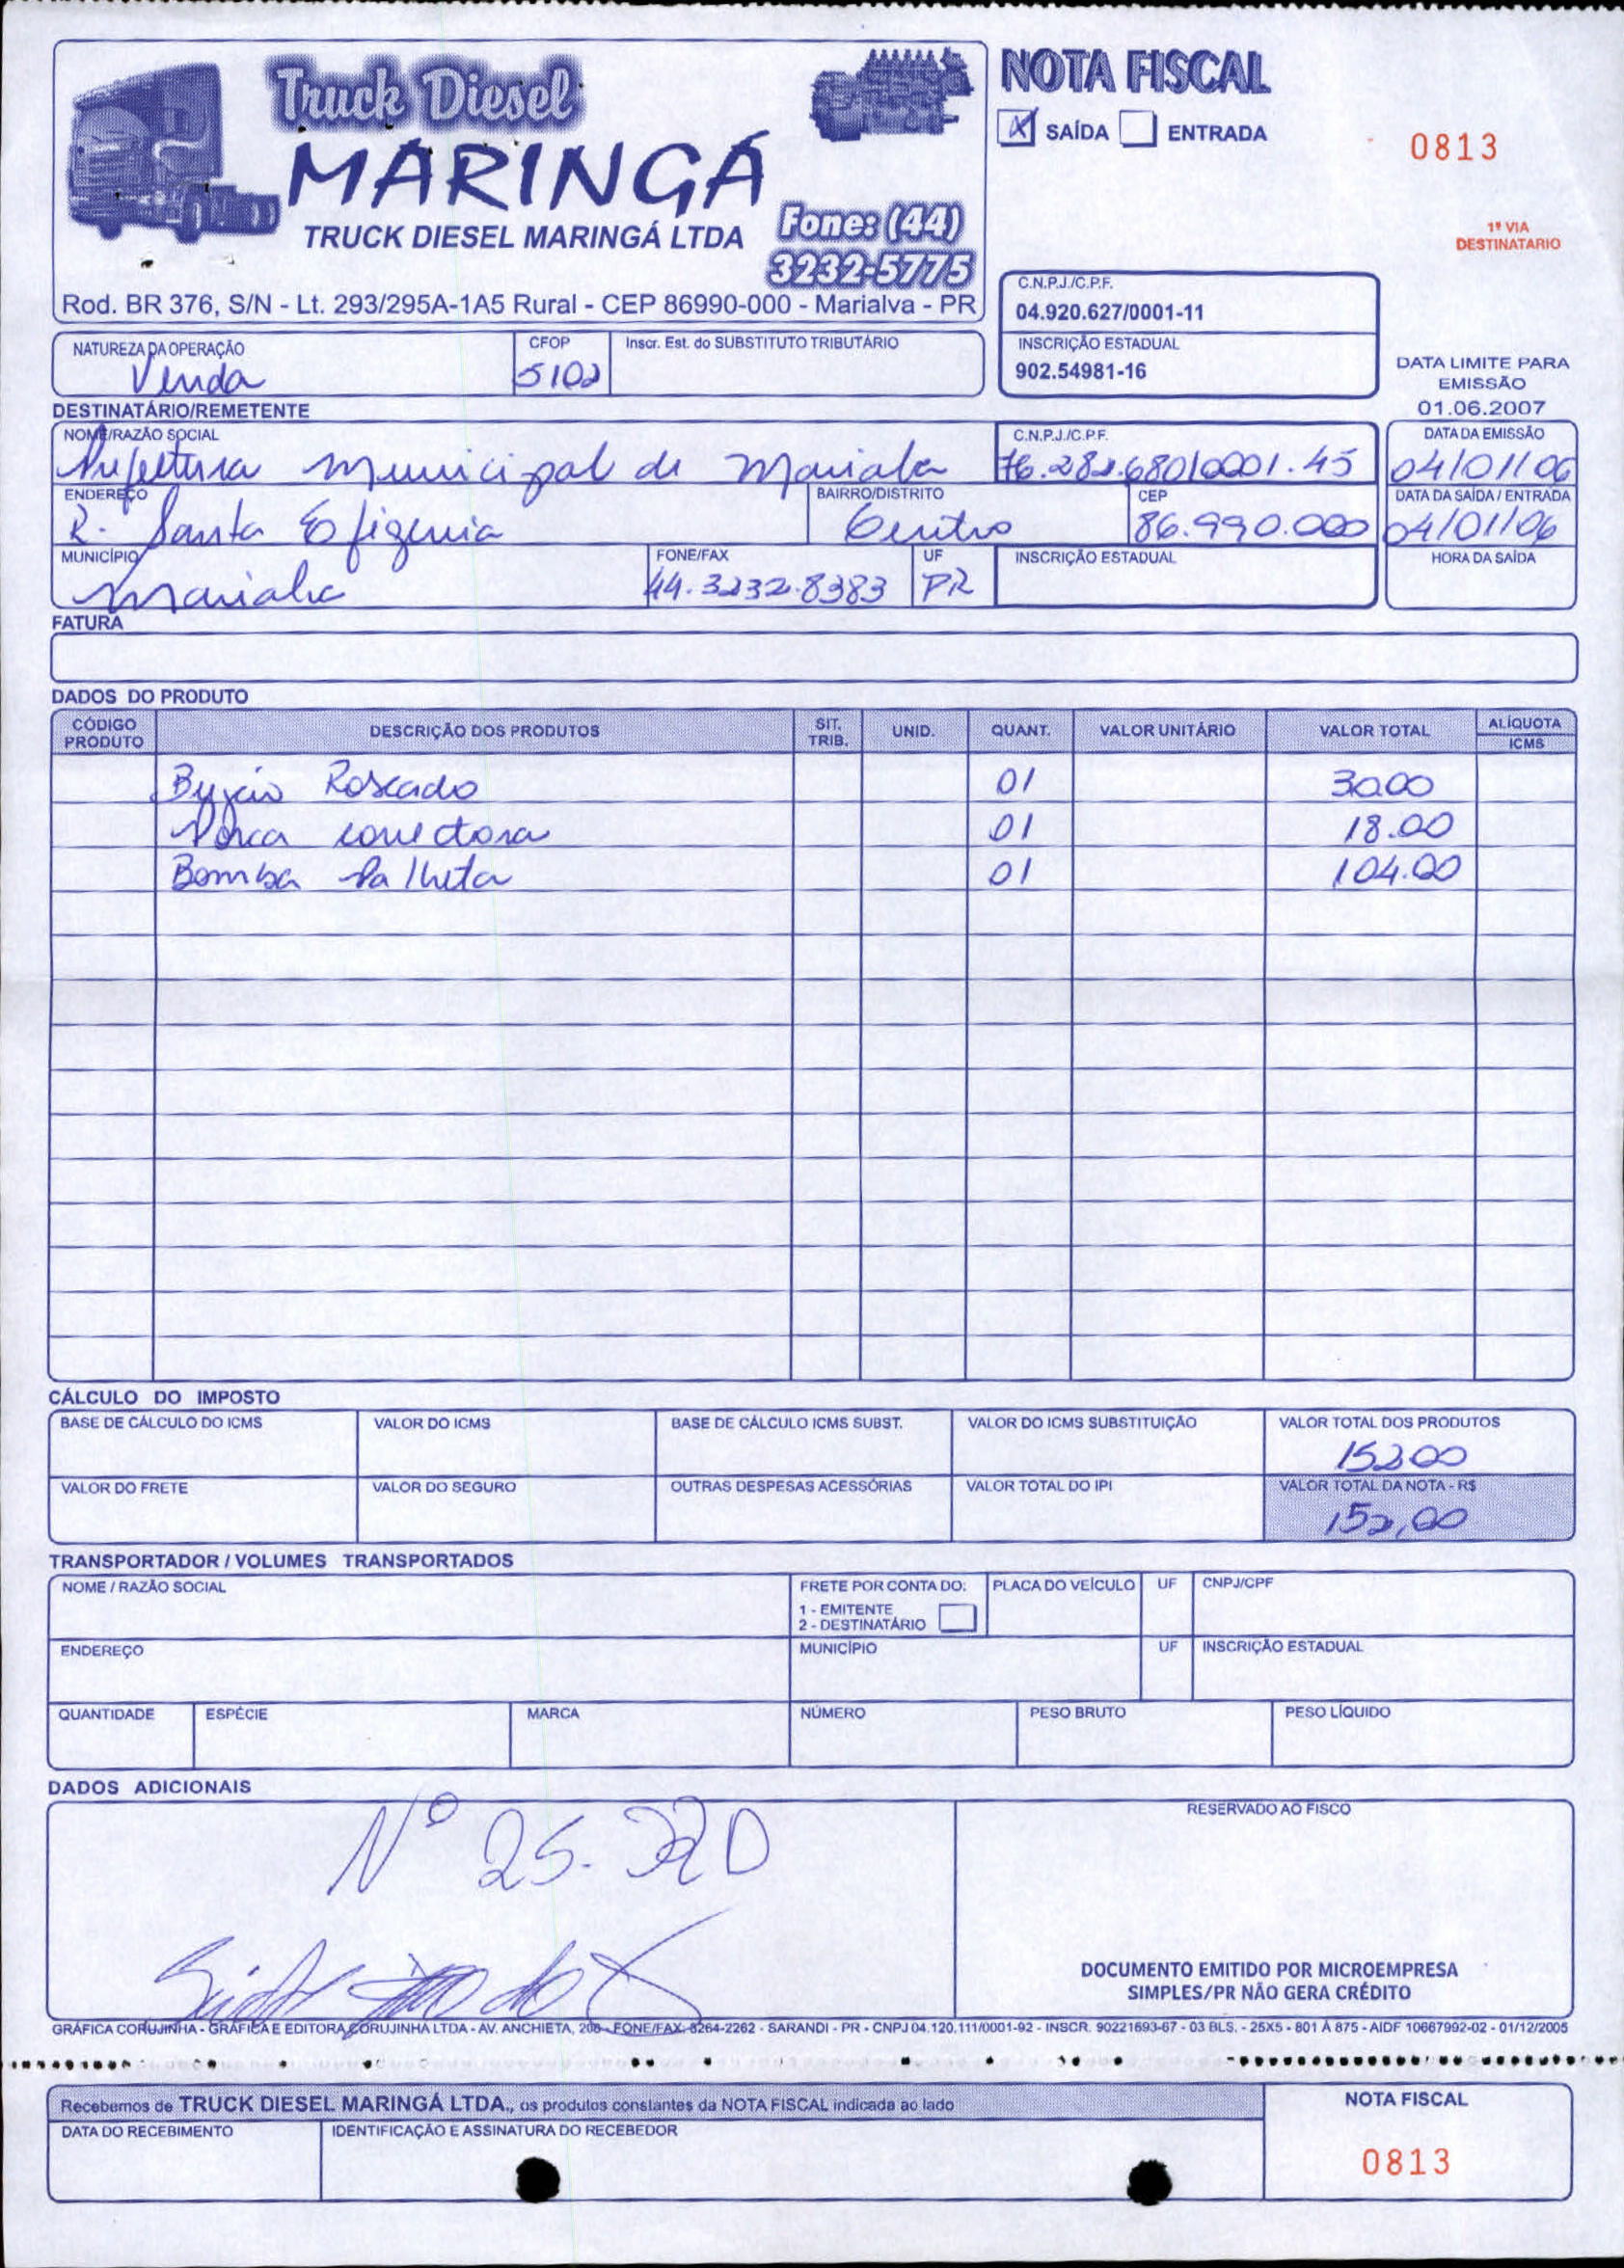 Truck Diesel
MARINGÁ
TRUCK DIESEL MARINGÁ LTDA
Fone: (44)
3232-5775
Rod. BR 376, S/N - Lt. 293/295A-1A5 Rural - CEP 86990-000 - Marialva - PR
NOTA FISCAL
X SAÍDA ENTRADA
0813
1ª VIA
DESTINATARIO
C.N.P.J./C.P.F.
04.920.627/0001-11
INSCRIÇÃO ESTADUAL
902.54981-16
DATA LIMITE PARA
EMISSÃO
01.06.2007
NATUREZA DA OPERAÇÃO CFOP Inscr. Est. do SUBSTITUTO TRIBUTÁRIO
Venda 5102
DESTINATÁRIO/REMETENTE
NOME/RAZÃO SOCIAL C.N.P.J./C.P.F. DATA DA EMISSÃO
Prefeitura Municipal de Marialva 76.282.680/0001.45 04/01/06
ENDEREÇO BAIRRO/DISTRITO CEP DATA DA SAÍDA / ENTRADA
R. Santa Efigenia Centro 86.990.000 04/01/06
MUNICÍPIO FONE/FAX UF INSCRIÇÃO ESTADUAL HORA DA SAÍDA
Marialva 44.3232.8383 PR
FATURA
DADOS DO PRODUTO
CÓDIGO PRODUTO DESCRIÇÃO DOS PRODUTOS SIT. TRIB. UNID. QUANT. VALOR UNITÁRIO VALOR TOTAL ALÍQUOTA ICMS
Roscado 01 30.00
Porca 01 18.00
Bomba Palheta 01 104.00
CÁLCULO DO IMPOSTO
BASE DE CÁLCULO DO ICMS VALOR DO ICMS BASE DE CÁLCULO ICMS SUBST. VALOR DO ICMS SUBSTITUIÇÃO VALOR TOTAL DOS PRODUTOS
152.00
VALOR DO FRETE VALOR DO SEGURO OUTRAS DESPESAS ACESSÓRIAS VALOR TOTAL DO IPI VALOR TOTAL DA NOTA - R$
152,00
TRANSPORTADOR / VOLUMES TRANSPORTADOS
NOME / RAZÃO SOCIAL FRETE POR CONTA DO: PLACA DO VEÍCULO UF CNPJ/CPF
1 - EMITENTE
2 - DESTINATÁRIO
ENDEREÇO MUNICÍPIO UF INSCRIÇÃO ESTADUAL
QUANTIDADE ESPÉCIE MARCA NÚMERO PESO BRUTO PESO LÍQUIDO
DADOS ADICIONAIS
RESERVADO AO FISCO
Nº 25.320
DOCUMENTO EMITIDO POR MICROEMPRESA
SIMPLES/PR NÃO GERA CRÉDITO
GRÁFICA CORUJINHA - GRÁFICA E EDITORA CORUJINHA LTDA - AV. ANCHIETA, 208 - FONE/FAX: 3264-2262 - SARANDI - PR - CNPJ 04.120.111/0001-92 - INSCR. 90221693-67 - 03 BLS. - 25X5 - 801 À 875 - AIDF 10667992-02 - 01/12/2005
Recebemos de TRUCK DIESEL MARINGÁ LTDA., os produtos constantes da NOTA FISCAL indicada ao lado
NOTA FISCAL
DATA DO RECEBIMENTO IDENTIFICAÇÃO E ASSINATURA DO RECEBEDOR
0813